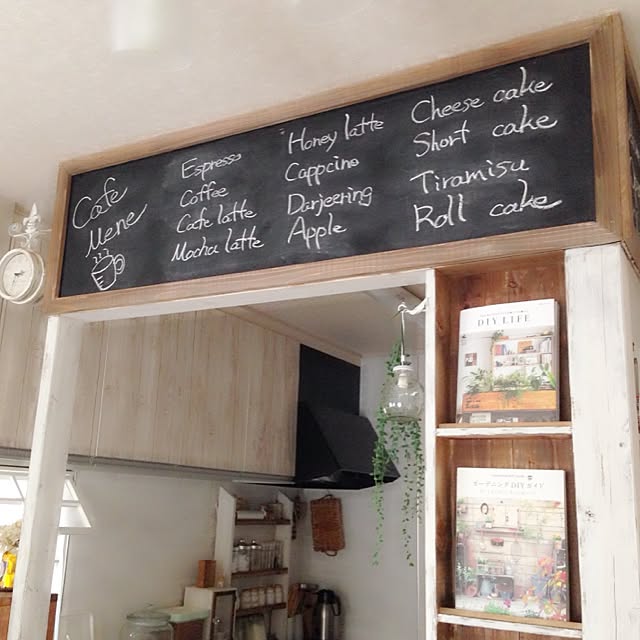 Cafe
Mene
Espresso
Coffee
Cafe latte
Mocha latte
Honey latte
Cappcino
Darjeering
Apple
Cheese cake
Short cake
Tiramisu
Roll cake
DIY LIFE
ガーデニングDIYガイド